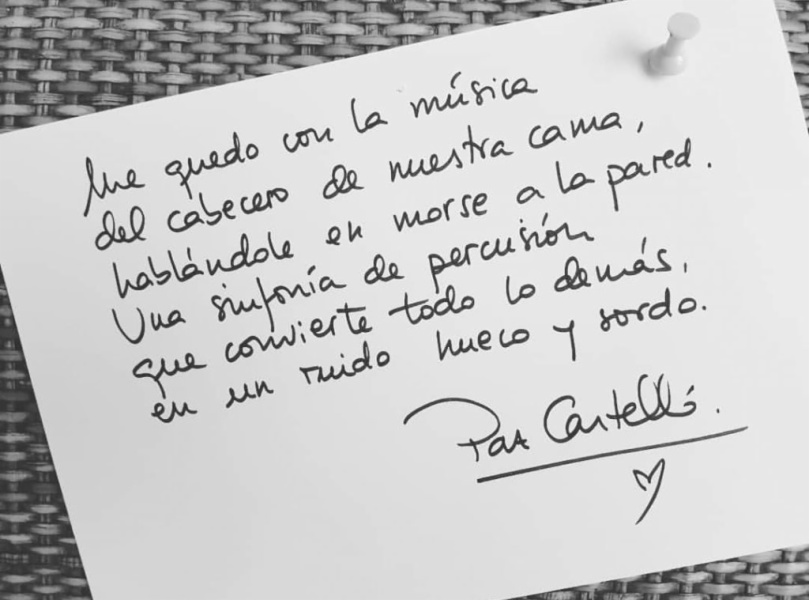 Me quedo con la música
del cabecero de nuestra cama,
hablándole en morse a la pared.
Una sinfonía de percusión
que convierte todo lo demás,
en un ruido hueco y sordo.
Paz Castelló.